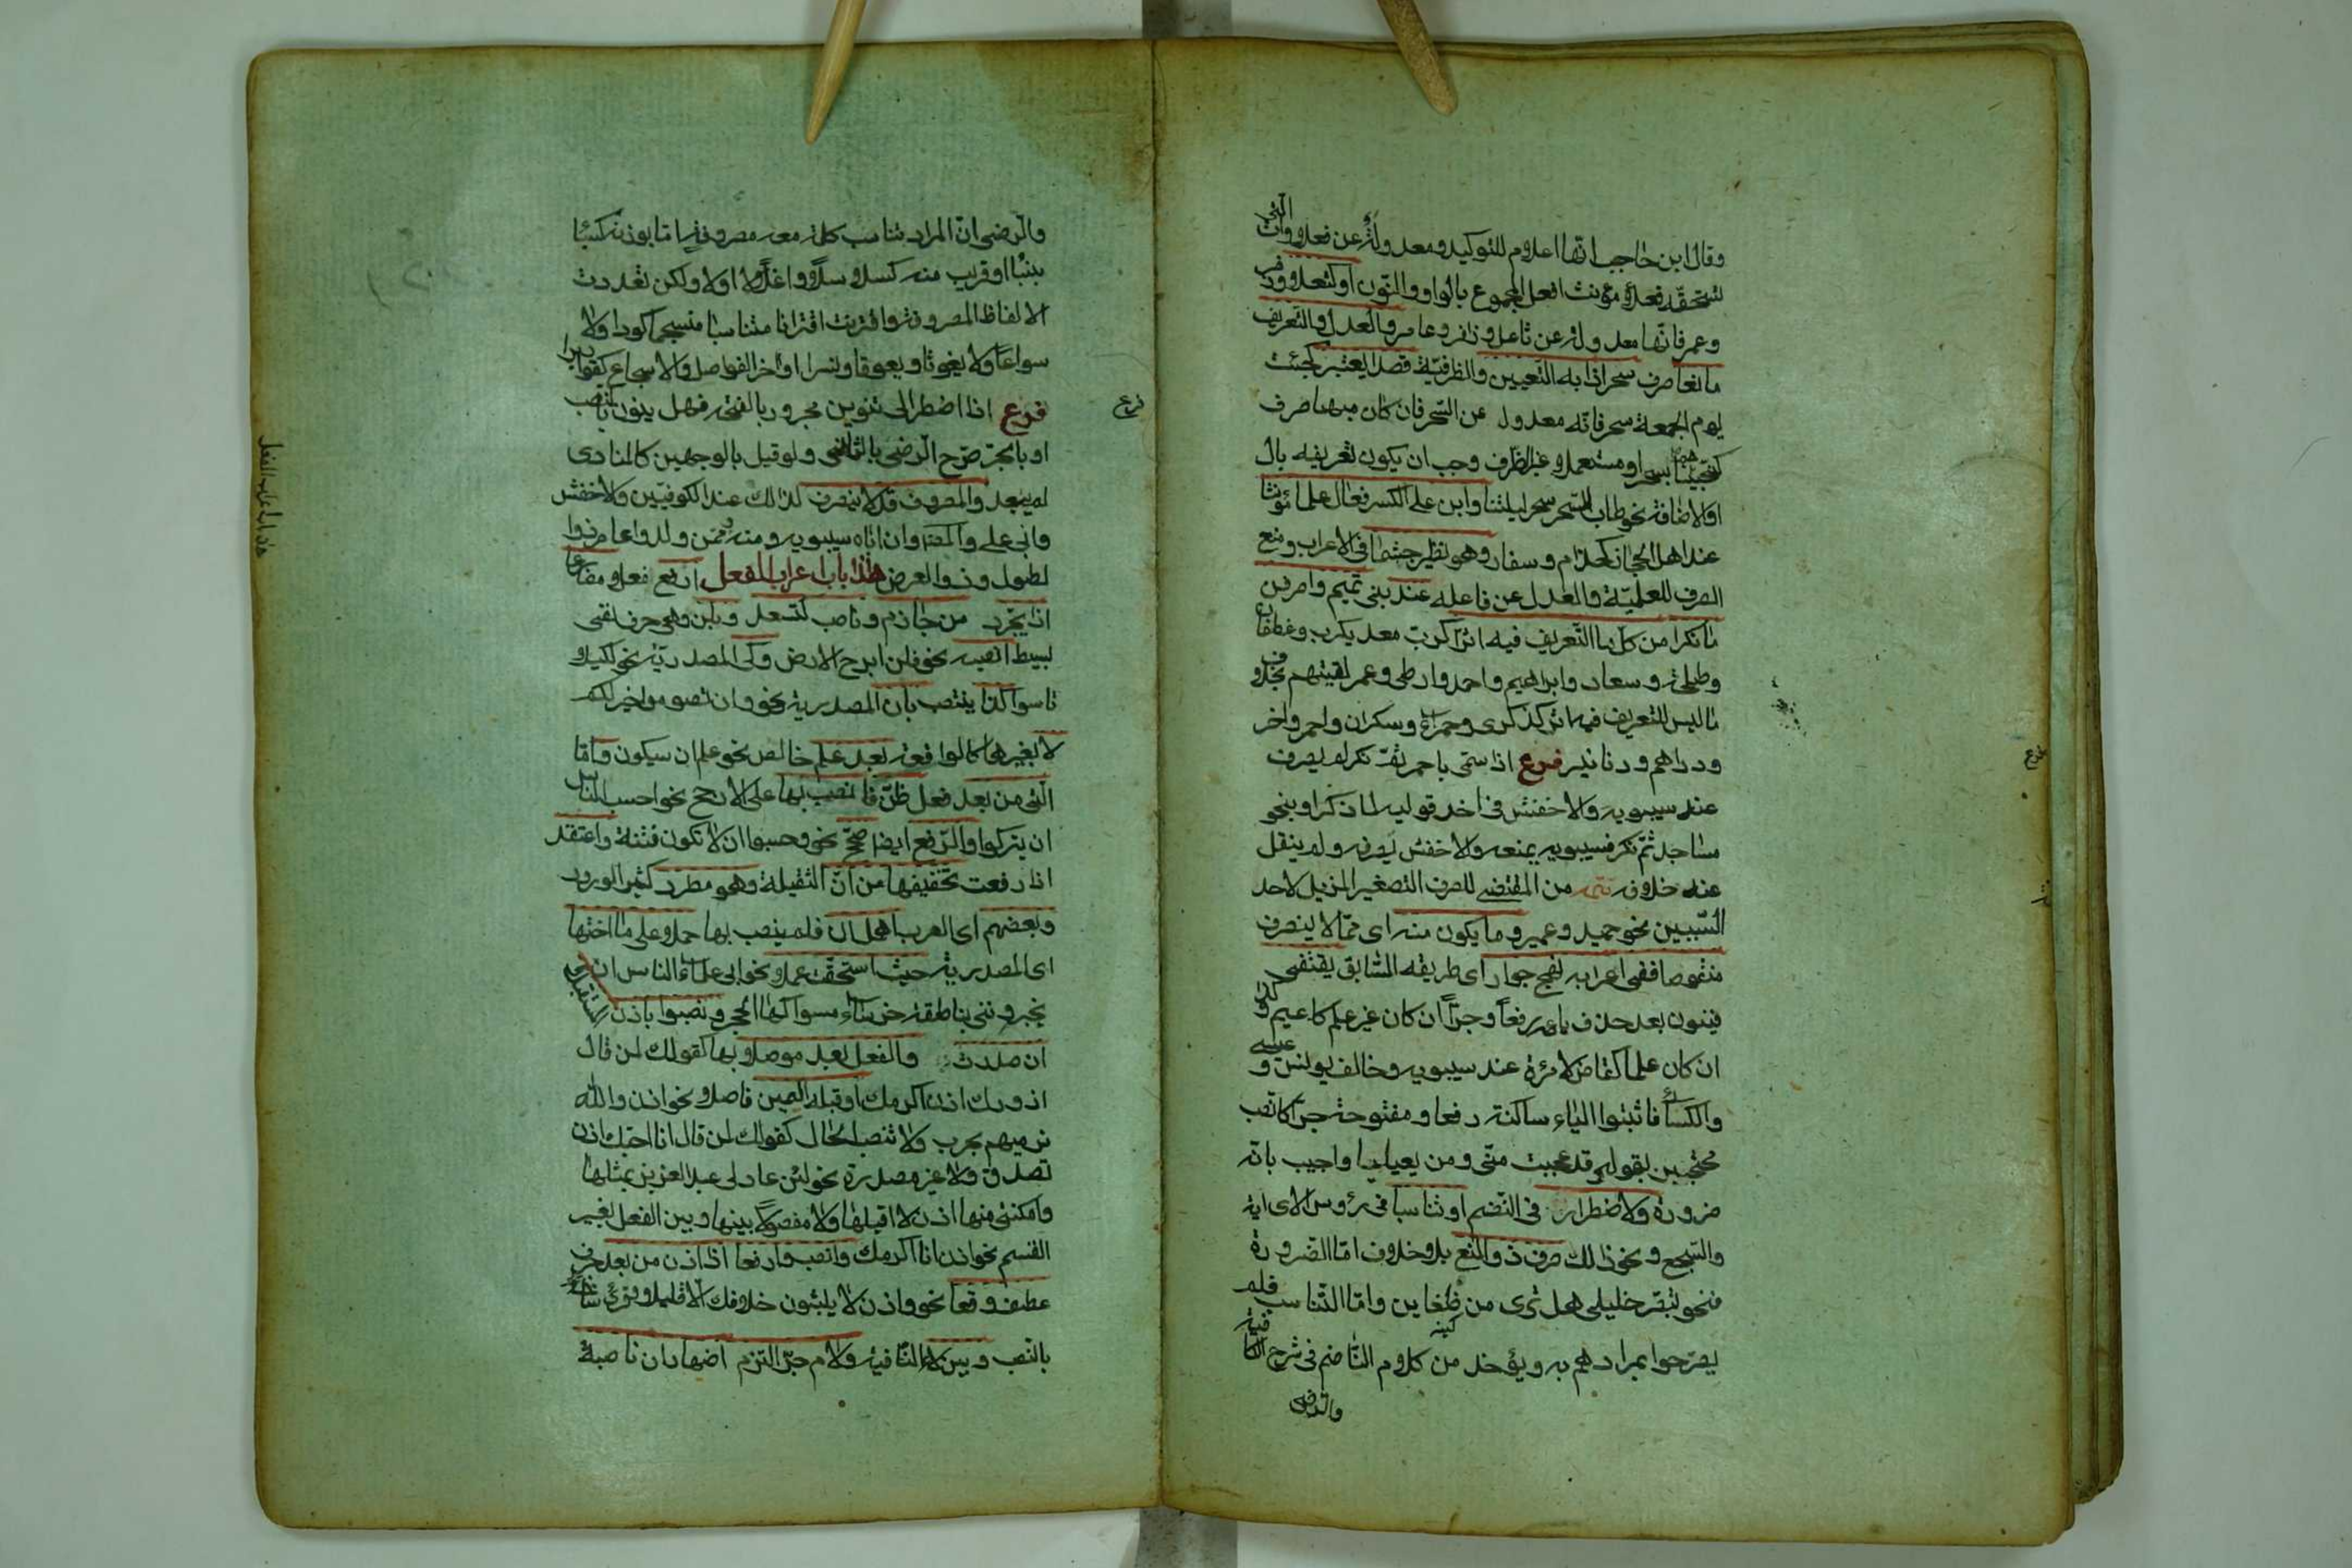 وقال ابن حاجب انها اعلام للتوكيد ومعدولة عن فعلاوات التي
تستحقه فعلاء مؤنث افعل المجموع بالواو والنون او كثعل وزفر
وعمر فانها معدولة عن ثاعل وزافر وعامر والعدل والتعريف
مانعا صرف سحر اذا به التعيين والظرفية قصدا يعتبر كجئت
يوم الجمعة سحر فانه معدول عن السحر فان كان مبهما صرف
كنجيناهم بسحر او مستعملا غير ظرف وجب ان يكون تعريفه بال
او الاضافة نحو طاب السحر سحر ليلتنا وابن على الكسر فعال علما مؤنثا
عند اهل الحجاز كحذام وسفار وهو نظير جشما في الاعراب ومنع
الصرف للعلمية والعدل عن فاعله عند بني تميم واصرفن
ما نكرا من كل ما التعريف فيه اثرا كرب معد يكرب وغطفان
وطلحة وسعاد وابراهيم واحمد وارطى وعمر لقيتهم بخلاف
ما ليس للتعريف فيه اثر كذكرى وحمراء وسكران واحمر واخر
ودراهم ودنانير فرع اذا سمى باحمر ثم نكر لم يصرف
عند سيبويه والاخفش في اخد قوليه لما ذكر او بنحو
مساجد ثم نكر فسيبويه يمنعه والاخفش يصرفه ولم ينقل
عنه خلافه تتمه من المقتضى للصرف التصغير المزيل لاحد
السببين نحو حميد وعمير وما يكون منه اى مما لا ينصرف
منقوصا ففى اعرابه نهج جوار اى طريقه السابق يقتفى
فينون بعد حذف يائه رفعا وجرا ان كان غير علم كاعيم وكذا
ان كان علما كقاض لامرئة عند سيبويه وخالف يونس وعيسى
والكسائى فاثبتوا الياء ساكنة رفعا ومفتوحة جرا كالنصب
محتجين بقوله قد عجبت منى ومن يعيليا واجيب بانه
ضرورة ولاضطرار في النضم او تناسبا في رؤس الاى اية
والسجع ونحو ذلك صرف ذو المنع بلا خلاف اما الضرورة
فنحو تبصر خليلى هل ترى من ظغاين واما التناسب فلم
يصرحوا بمرادهم به ويؤخذ من كلام الناضم في شرح الكافية
والرضى
فرع
والرضى ان المراد تناسب كلمة معه مصروفة اما بوزنه كسبا
بنبا او قريب منه كسلاسلا واغلالا اولا ولكن تعددت
الالفاظ المصروفة واقترنت اقترانا متناسبا منسجما كودا ولا
سواعا ولا يغوثا ويعوقا ونسرا او أخر الفواصل والاسجاع كقواريرا
فرع اذا اضطر الى تنوين مجرور بالفتحة فهل ينون بالنصب
او بالجر صرح الرضى بالثانى ولو قيل بالوجهين كالمنادى
لم يبعد والمصروف قد لا ينصرف لذلك عند الكوفيين والاخفش
وابى على والمصنف وان اباه سيبويه ومنه وممن ولدوا عامر ذوا
لطول وذوا العرض هذا باب اعراب الفعل ارفع فعلا مضارعا
اذا يجرد من جازم وناصب كتسعد وبلن وهى حرف نفى
بسيط انصبه نحو فلن ابرح الارض وكى المصدرية نحو لكيلا
تاسوا كذا ينتصب بان المصدرية نحو وان تصوموا خير لكم
لا بغيرها كالواقعة بعد علم خالص نحو علم ان سيكون واما
التى من بعد فعل ظن فانصب بها على الارجح نحو احسب الناس
ان يتركوا والرفع ايضا صحح نحو وحسبوا ان لا تكون فتنة واعتقد
اذا رفعت تخفيفها من ان الثقيلة وهو مطرد كثير الورود
وبعضهم اى العرب اهمل ان فلم ينصب بها حملا على ما اختها
اى المصدرية حيث استحقت عملا نحو ابى علماء الناس ان
يخبروننى بناطقة خرساء مسواكها الحجر ونصبوا باذن المستقبلا
ان صدرت والفعل بعد موصلا بها كقولك لمن قال
ازورك اذن اكرمك او قبله اليمين فاصلا نحو اذن والله
نرميهم بحرب ولا تنصب الحال كقولك لمن قال انا احبك اذن
تصدق ولا غير مصدرة نحو لئن عاد لى عبد العزيز بمثلها
وامكننى منها اذن لا اقيلها ولا مفصولا بينها وبين الفعل بغير
القسم نحو اذن انا اكرمك وانصب وارفعا اذا اذن من بعد حرف
عطف وقعا نحو واذن لا يلبثون خلافك الا قليلا وقرئ شاذا
بالنصب وبين لا النافية ولام جر التزم اضهار ان ناصبة
فرع
هذا باب اعراب الفعل